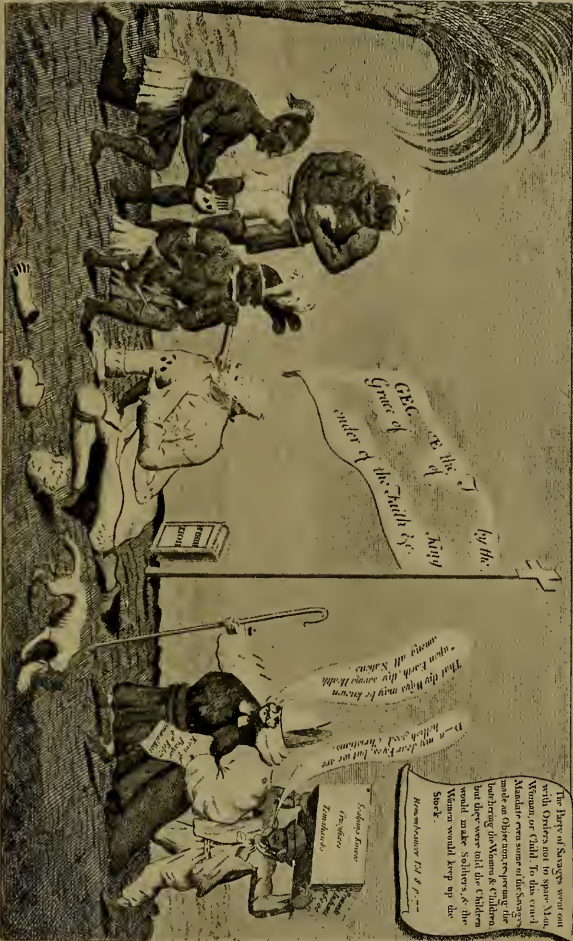 The Party of Savages went out
with Orders not to spare Man
Woman, or Child. To this cruel
Mandate even some of the Savages
made an Objection, respecting the
butchering the Women & Children
but they were told the Children
would make Soldiers, & the
Women would keep up the
Stock.
Remembrancer Vol. 8. p.
GEG CE the T by the
Grace of of King
ender of the Faith &c
That thy Ways may be known
upon Earth, thy saving Health
among all Nations.
D—n my dear Eyes, but we are
hellish good Christians.
Scalping Knives
Crucifixes
Tomahawks
HOLY
BIBLE